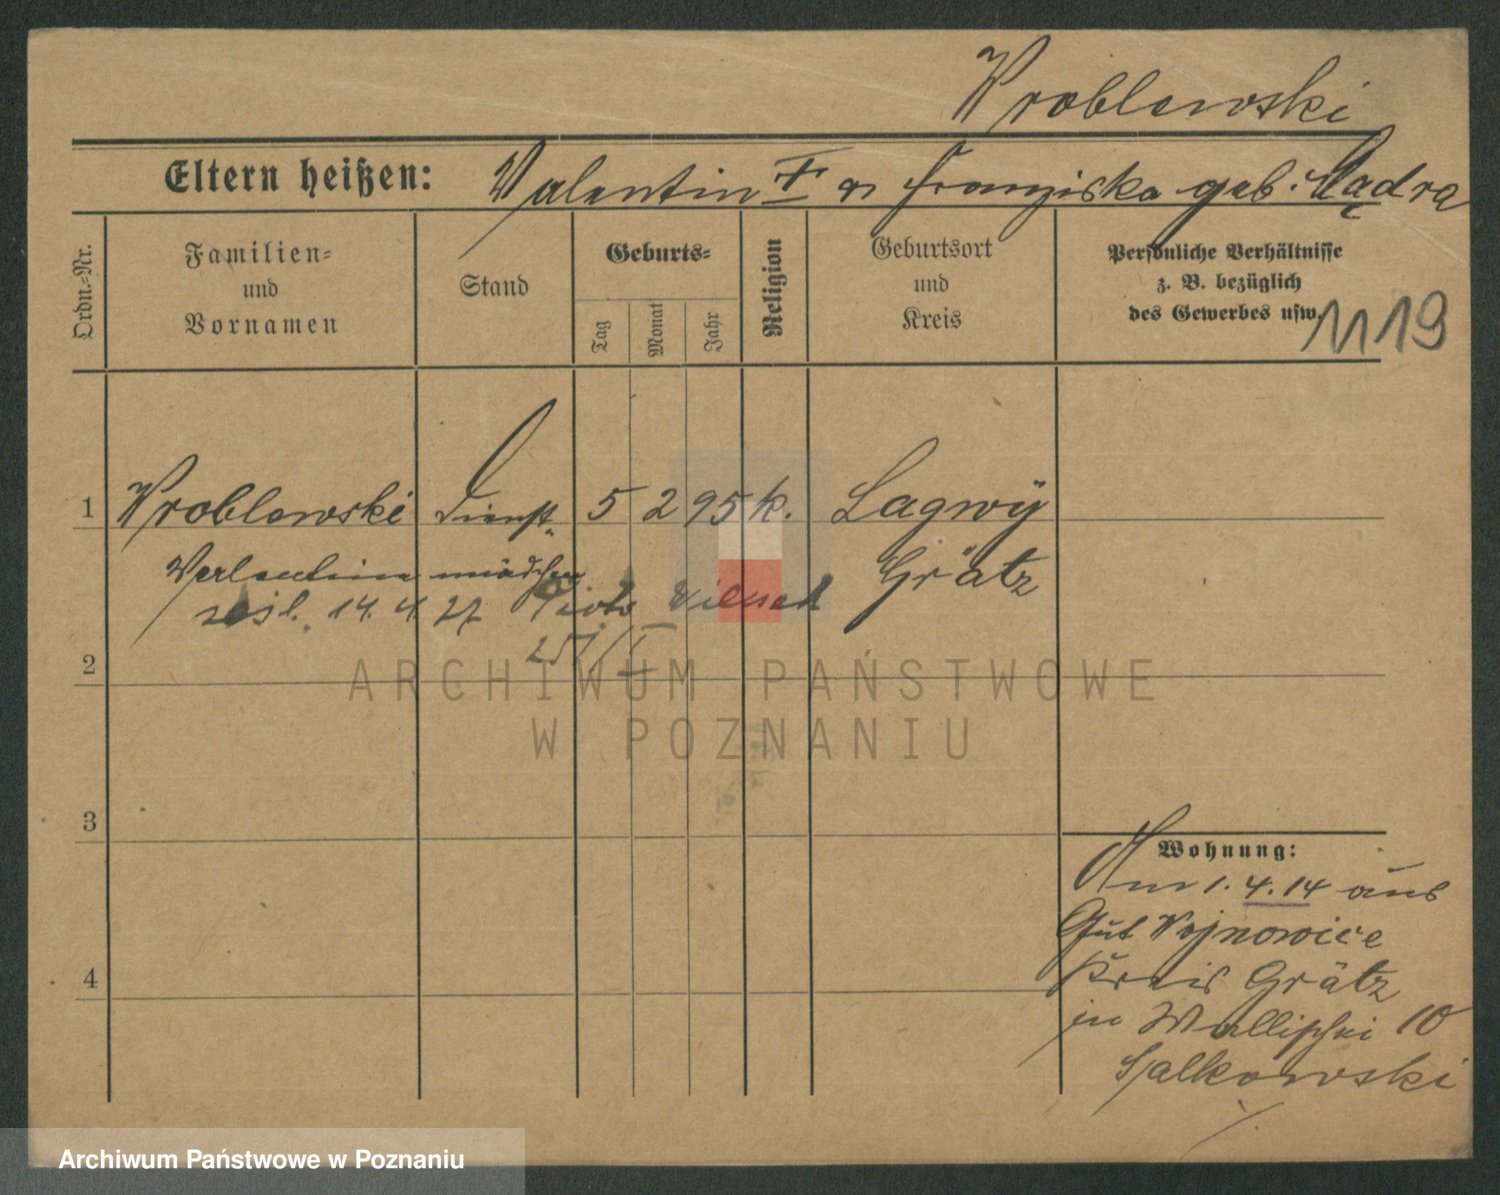 Wroblewski
Eltern heißen: Valentin † u. Franziska geb. Mądra
Ordn.-Nr.
Familien- und Vornamen
Stand
Geburts-
Tag
Monat
Jahr
Religion
Geburtsort und Kreis
Persönliche Verhältnisse
z. B. bezüglich
des Gewerbes usw.
1119
1 Wroblewski Dienst- 5 2 95 k. Lagwÿ
Valentine mädchen Grätz
14. 4. 27 Piotr
2
ARCHIWUM PAŃSTWOWE
W POZNANIU
3
Wohnung:
Am 1. 4. 14 aus
Gut Wojnowice
4
Kreis Grätz
in Wallischei 10
Salkowski
Archiwum Państwowe w Poznaniu